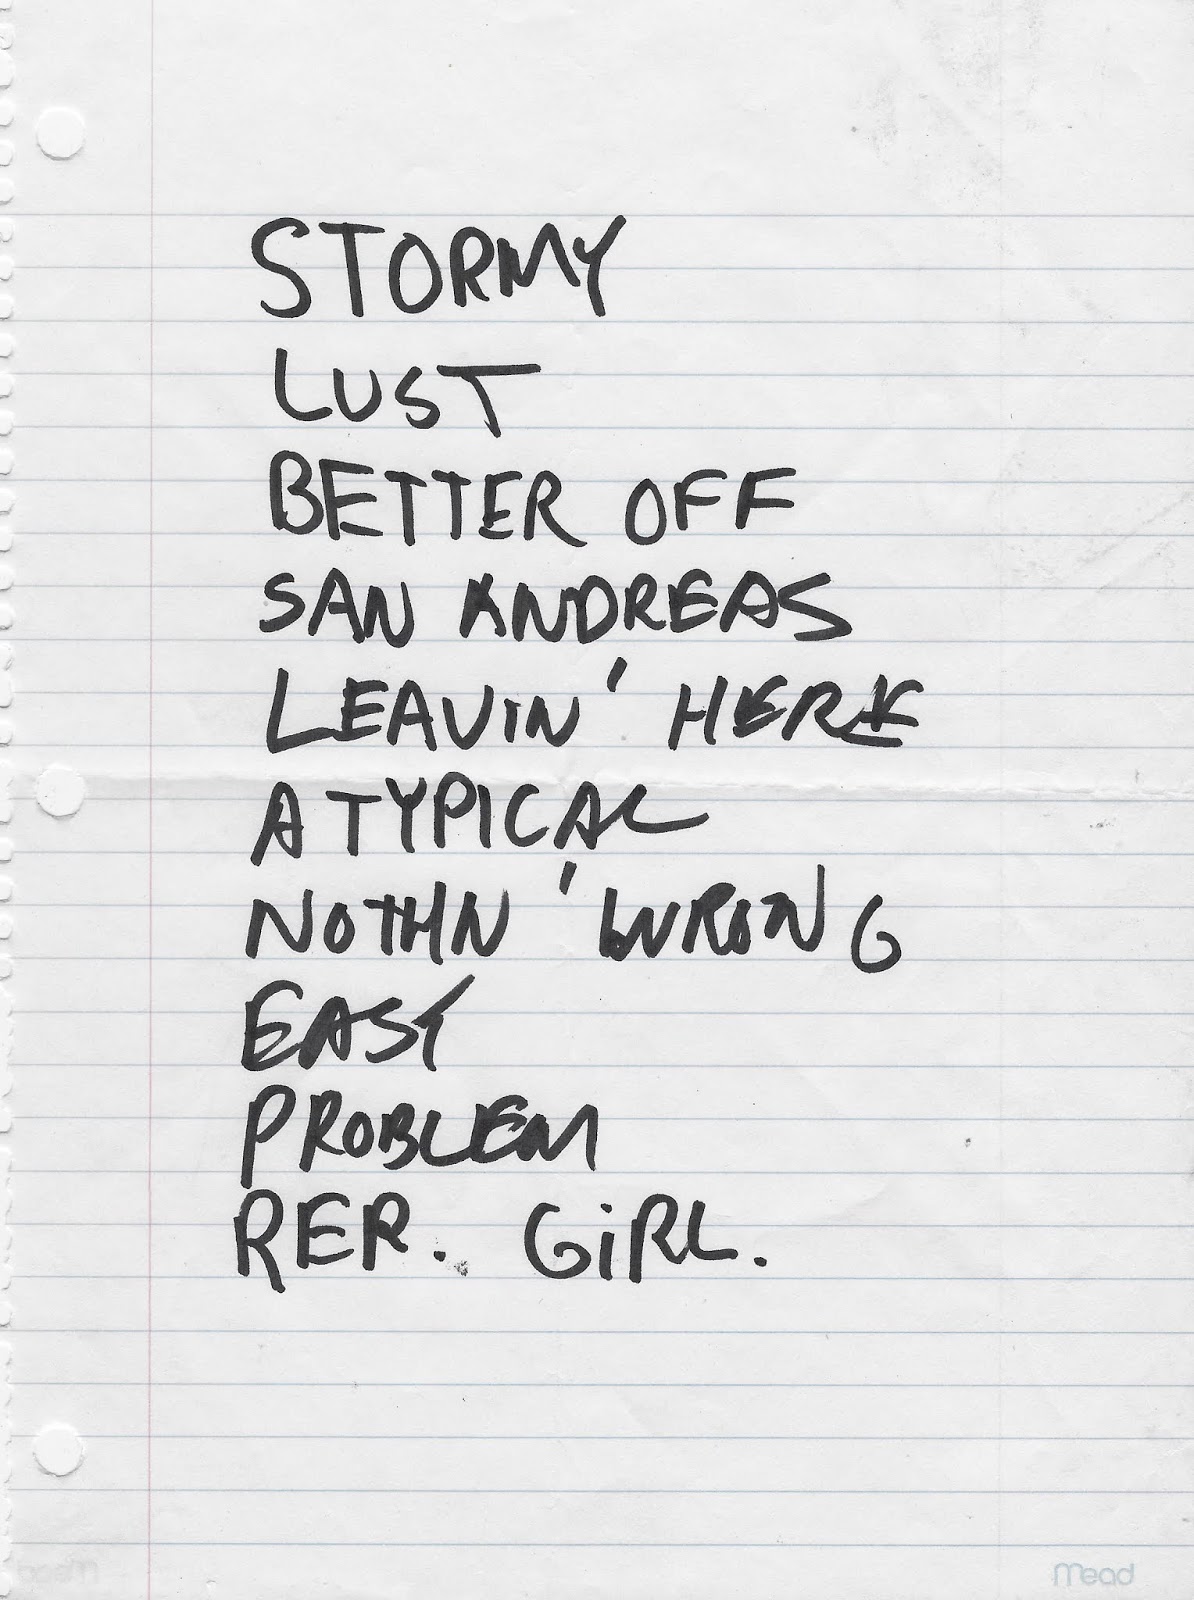 STORMY
LUST
BETTER OFF
SAN ANDREAS
LEAVIN' HERE
ATYPICAL
NOTHN' WRONG
EASY
PROBLEM
RER. GiRL.
Mead